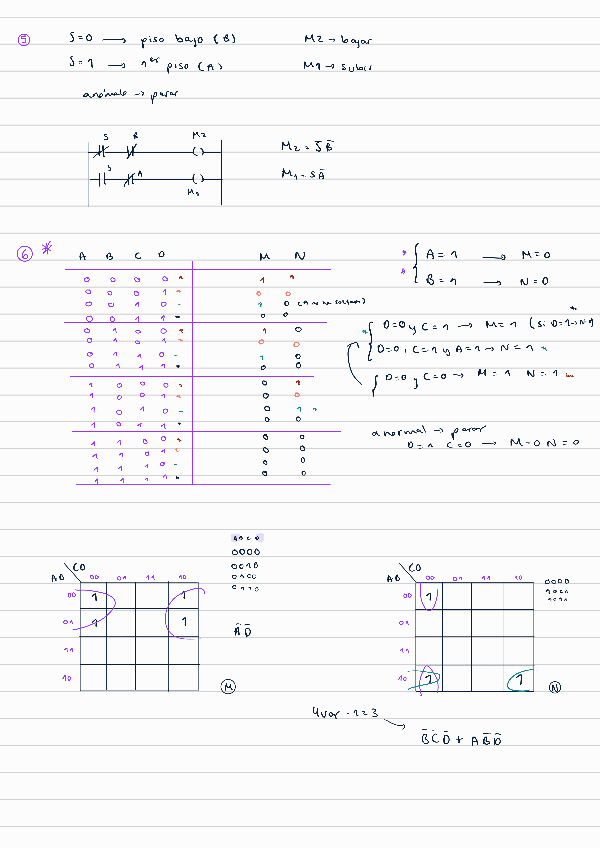 5 S=0 → piso bajo (B) M2 → bajar
S=1 → 1er piso (A) M1 → subir
anómalo → parar
S B M2
M2 = S̄ B̄
S A
M1 = S Ā
M1
6 * A B C D M N
* A = 1 → M = 0
* B = 1 → N = 0
0 0 0 0 * 1 1
0 0 0 1 0 0
0 0 1 0 - 1 0
0 0 1 1 0 0
0 1 0 0 1 0
0 1 0 1 0 0
0 1 1 0 - 1 0
0 1 1 1 0 0
1 0 0 0 0 1
1 0 0 1 0 0
1 0 1 0 - 0 1
1 0 1 1 0 0
1 1 0 0 0 0
1 1 0 1 0 0
1 1 1 0 - 0 0
1 1 1 1 0 0
D=0 y C=1 → M=1
D=0, C=1 y A=1 → N=1
D=0 y C=0 → M=1 N=1
anormal → parar
D=1 C=0 → M=0 N=0
A B C D
0000
0010
0100
0110
CD
AB 00 01 11 10
00 1 1
01 1 1
11
10
Ā D̄
M
CD
AB 00 01 11 10
00 1
01
11
10 1 1
0000
1000
1010
N
4var - 1 = 3
B̄ C̄ D̄ + A B̄ D̄